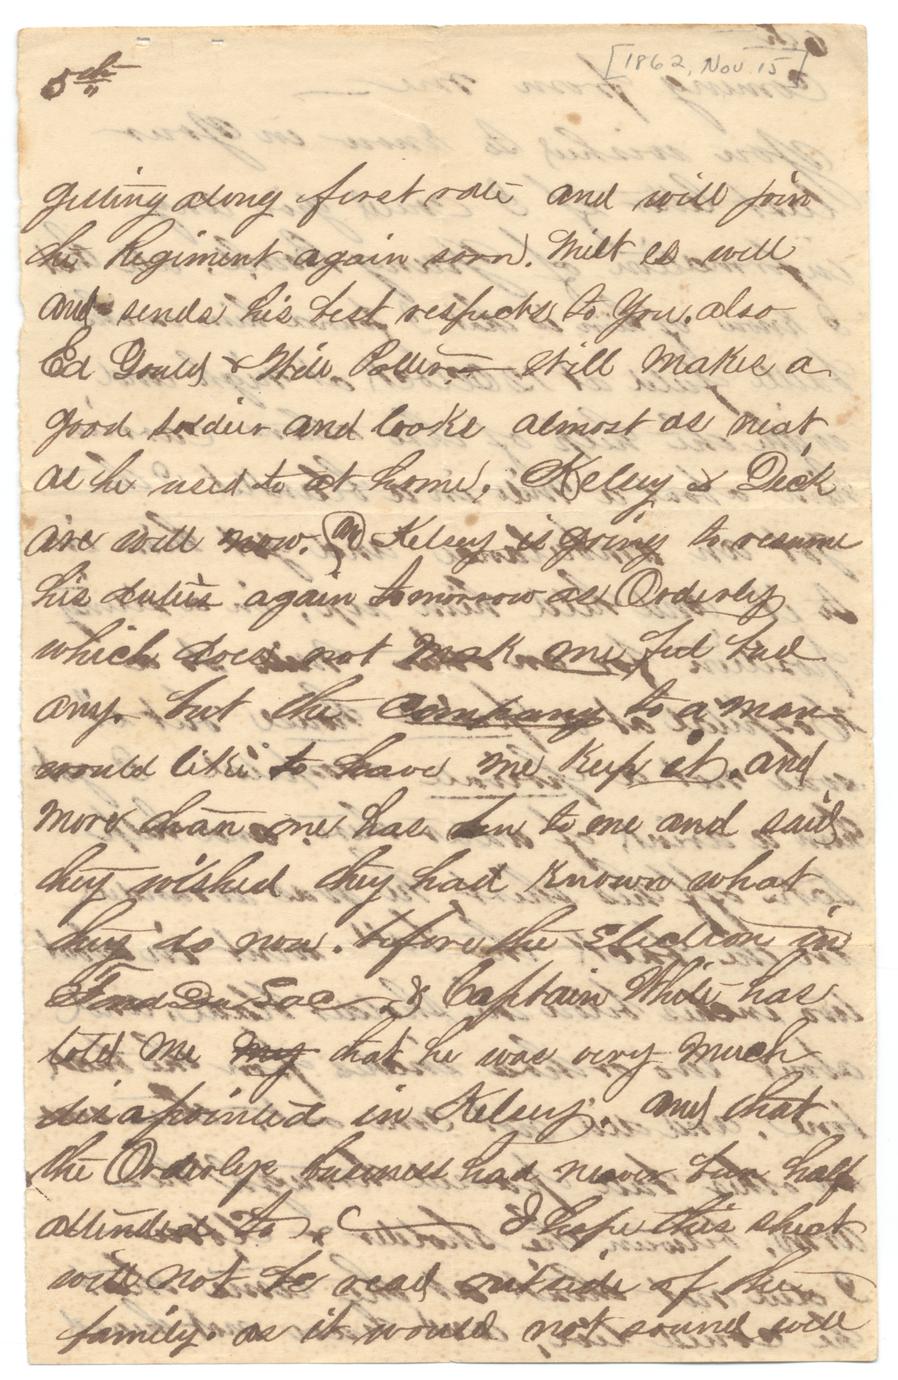 5th
[1862, Nov 15]
getting along first rate and will join
the Regiment again soon. Milt is well
and sends his best respects to you. also
Ed Gould & Will Still makes a
good soldier and looks almost as neat
as he used to at home. Kelsey & Dick
are well now. Kelsey is going to resume
his duties again tomorrow as Orderly
which does not make me feel bad
any. but the company to a man
would like to have me keep it. and
more than one has been to me and said
they wished they had known what
they do now. before the election in
Fond Du Lac & Captain White has
told me my that he was very much
disapointed in Kelsey. and that
the Orderlys business had never been half
attended to. I hope this sheet
will not be read outside of the
family as it would not sound well